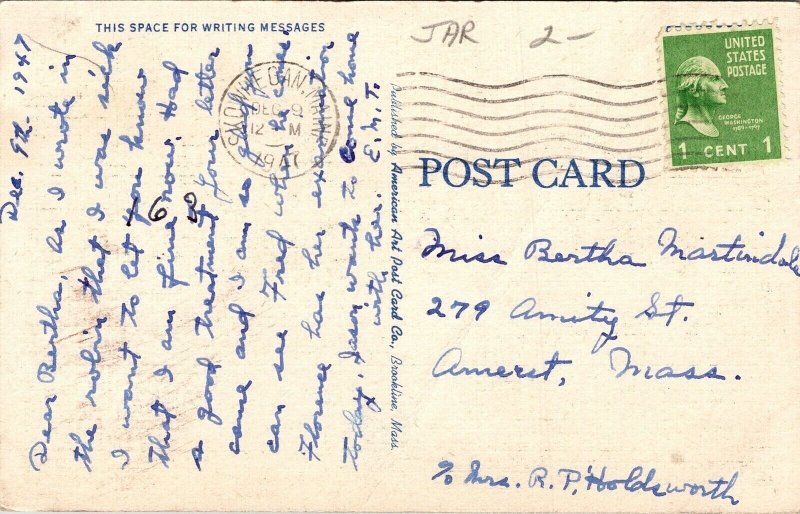 THIS SPACE FOR WRITING MESSAGES
Dec. 9th. 1947
Dear Bertha, as I wrote in
the robin that I was sick
I want to let you know
that I am fine now. Had
a good treatment. Your letter
came and I am so glad you
can see Fred when he comes.
Florence has her ex
today. Jason wants to come home
with her. E.M.T.
6 8
Published by American Art Post Card Co., Brookline, Mass.
JAR 2-
SKOWHEGAN, MAINE
DEC 9
12 M
1947
UNITED
STATES
POSTAGE
GEORGE
WASHINGTON
1789-1797
1 CENT 1
POST CARD
Miss Bertha Martindale
279 Amity St.
Amerst, Mass.
c/o Mrs. R. P. Holdsworth